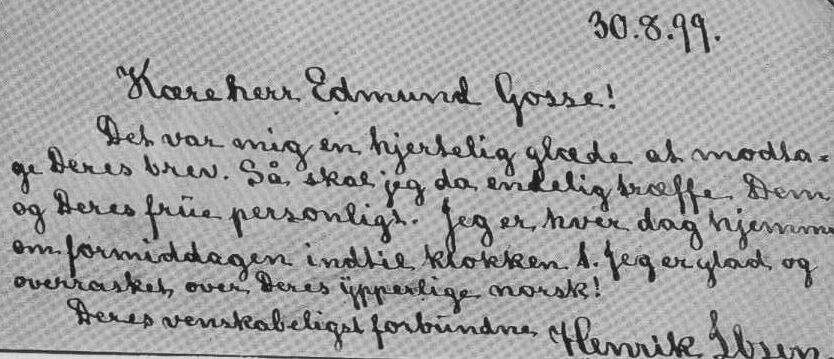 30.8.99.
Kære herr Edmund Gosse!
Det var mig en hjertelig glæde at modta=
ge Deres brev. Så skal jeg da endelig træffe Dem
og Deres frue personligt. Jeg er hver dag hjemme
om formiddagen indtil klokken 1. Jeg er glad og
overrasket over Deres ypperlige norsk!
Deres venskabeligst forbundne Henrik Ibsen